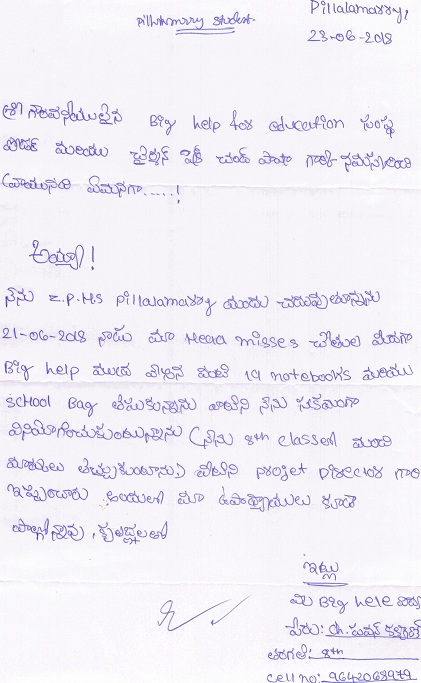 pillalamarry student.
Pillalamarry,
23-06-2018
శ్రీ గౌరవనీయులైన Big help for education సంస్థ
మరియు చైర్మన్ చంద్ పాషా గారికి నమస్కరించి
వ్రాయునది ఏమనగా.....!
అయ్యా!
నేను Z.P.H.S pillalamarry యందు చదువుతున్నాను
21-06-2018 నాడు మా Head misses చేతుల మీదుగా
Big help ద్వారా 19 notebooks మరియు
school Bag తీసుకున్నాను వాటిని నేను సక్రమంగా
వినియోగించుకుంటున్నాను (నేను 8th classలో మంచి
మార్కులు తెచ్చుకుంటాను) వీటిని projet Director గారు
ఇప్పించారు మా ఉపాధ్యాయులు కూడా
పాల్గొన్నారు, కృతజ్ఞతలతో
ఇట్లు
మీ Big hele
పేరు: ch. పవన్ కళ్యాణ్
తరగతి: 8th
cell no: 9642068979